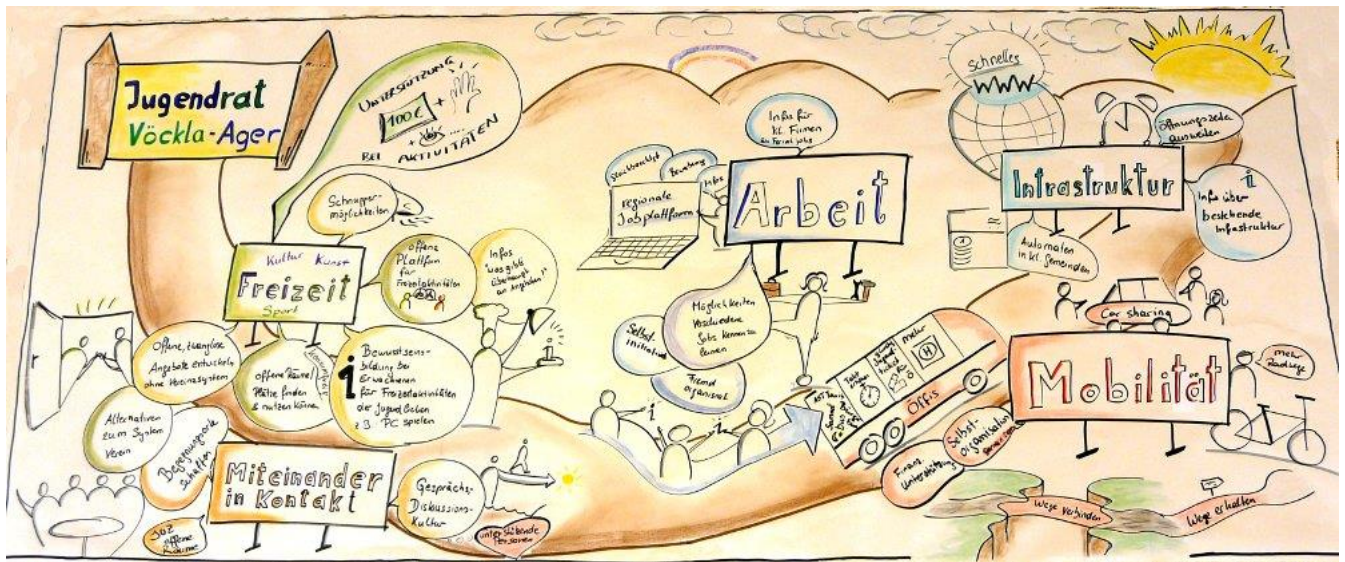 Jugendrat
Vöckla-Ager
UNTERSTÜTZUNG
100€
+
+
BEI AKTIVITÄTEN
Schnupper-
möglichkeiten
Kultur Kunst
Freizeit
Sport
offene
Plattform
für
Freizeitaktivitäten
Infos
"was gibts
überhaupt
an
Offene, zwanglose
Angebote entwickeln
ohne Vereinssystem
Alternativen
zum System
Verein
offene Räume/
Plätze finden
& nutzen können
i
Bewusstseins-
bildung bei
Erwachsenen
für Freizeitaktivitäten
der Jugendlichen
z.B. PC spielen
Begegnungsorte
schaffen
Miteinander
in Kontakt
JUZ
offene
Räume
Gesprächs-
Diskussions-
Kultur
unterstützende
Personen
Infos für
kl. Firmen
zu Ferialjobs
Beratung
Infos
regionale
Jobplattform
Arbeit
Möglichkeiten
verschiedene
Jobs kennenzu
lernen
Selbst-
initiativ
Fremd
organisiert
schnelles
WWW
Öffnungszeiten
ausweiten
Infrastruktur
i
Infos über
bestehende
Infrastruktur
Automaten
in kl. Gemeinden
Car sharing
Mobilität
mehr
Radwege
mehr
H
Öffis
Selbst-
organisation
Finanz.
Unterstützung
Wege verbinden
Wege erhalten